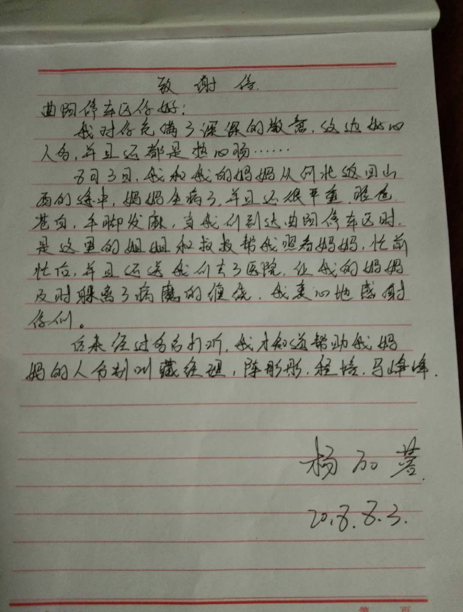 致谢信
曲阳停车区你好:
我对你充满了深深的敬意,这边好心
人多,并且还都是热心肠……
8月3日,我和我的妈妈从河北返回山
西的途中,妈妈生病了,并且还很严重,脸色
苍白,手脚发麻,当我们到达曲阳停车区时,
是这里的姐姐和叔叔帮我照看妈妈,忙前
忙后,并且还送我们去了医院,让我的妈妈
及时脱离了病魔的
我衷心地感谢
你们。
后来经过多方打听,我才知道帮助我妈
妈的人分别叫臧经理,陈彤彤,程培,马峰峰.
杨
蓉
8.3.